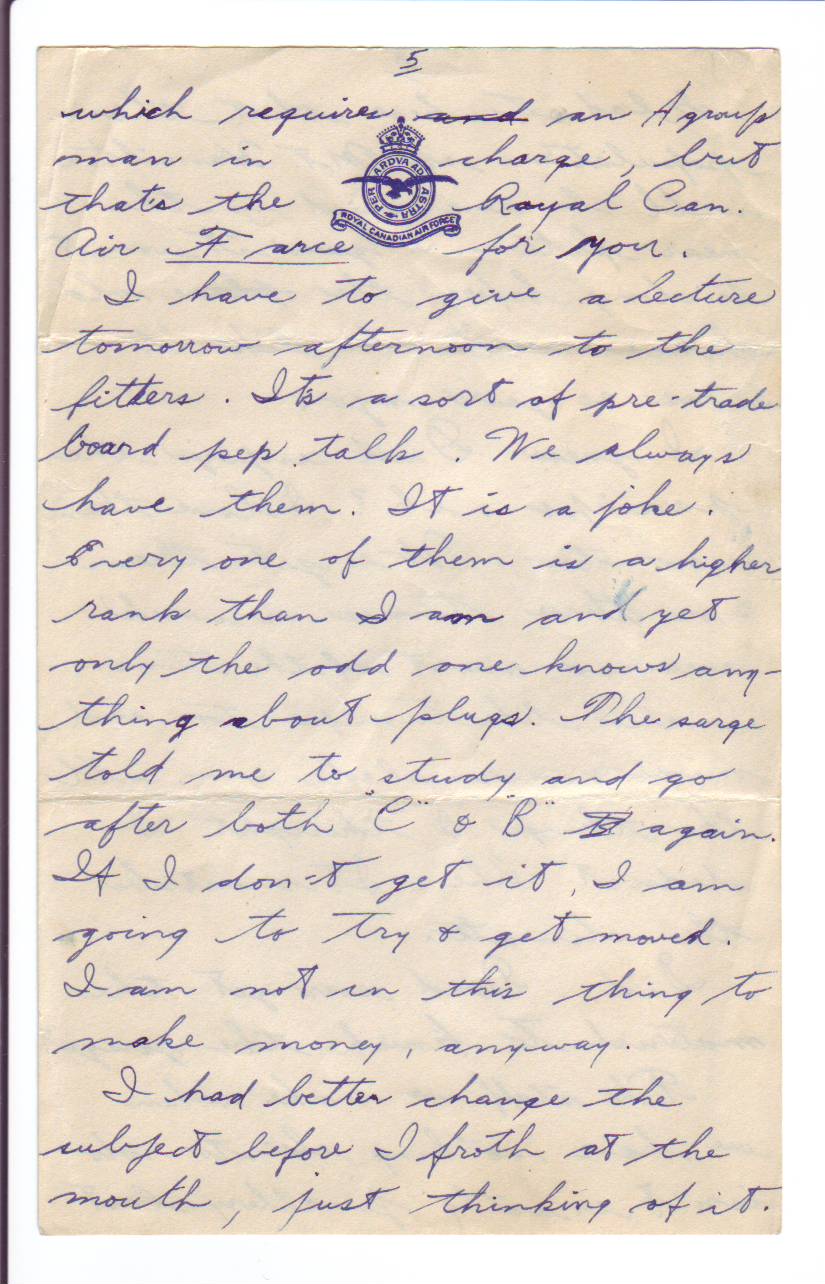 5
which requires and an A group
man in charge, but
that's the Royal Can.
Air F arce for you.
PER ARDVA AD ASTRA
ROYAL CANADIAN AIR FORCE
I have to give a lecture
tomorrow afternoon to the
fitters. It's a sort of pre-trade
board pep talk. We always
have them. It is a joke.
Every one of them is a higher
rank than I am and yet
only the odd one knows any-
thing about plugs. The sarge
told me to study and go
after both "C" & "B" again.
If I don't get it, I am
going to try & get moved.
I am not in this thing to
make money, anyway.
I had better change the
subject before I froth at the
mouth, just thinking of it.